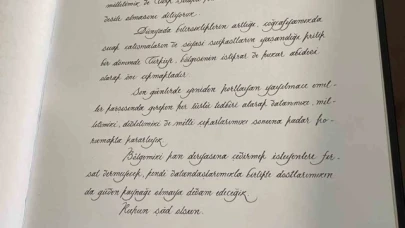 milletimiz ve Türk
vesile olmasını diliyorum.
Dünyada belirsizliklerin arttığı, coğrafyamızda
sıcak çatışmaların ve siyasi suikastların yaşandığı kritik
bir dönemde Türkiye, bölgesinin istikrar ve huzur abidesi
olarak öne çıkmaktadır.
Son günlerde yeniden hortlayan yayılmacı emel-
ler karşısında gereken her türlü tedbiri alarak vatanımızı, mil-
letimizi, devletimizi ve milli çıkarlarımızı sonuna kadar ko-
rumakta kararlıyız.
Bölgemizi kan deryasına çevirmek isteyenlere fır-
sat vermeyecek, kendi vatandaşlarımızla birlikte dostlarımızın
da güven kaynağı olmaya devam edeceğiz.
Ruhun şad olsun.